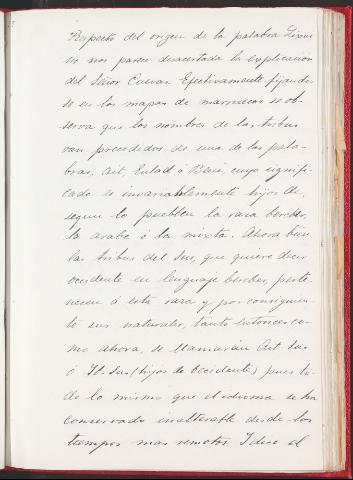 Respecto del origen de la palabra
no nos parece desacertada la explicación
del Señor Cuevas. Efectivamente fijando-
se en los mapas de marruecos se ob-
serva que los nombres de las tribus
van precedidos de una de las pala-
bras, Ait, Eulad ó Beni, cuyo signifi-
cado es invariablemente hijos de,
segun lo pueblen la raza berber,
la arabe ó la mixta. Ahora bien
las tribus del Sus, que quiere decir
occidente en lenguaje berber, perte-
necen á esta raza y por consiguien-
te sus naturales, tanto entonces co-
mo ahora, se llamarían Ait Sus
ó It-Sus (hijos de Occidente) pues to-
do lo mismo que el idioma se ha
conservado inalterable desde los
tiempos mas remotos. Y dice el